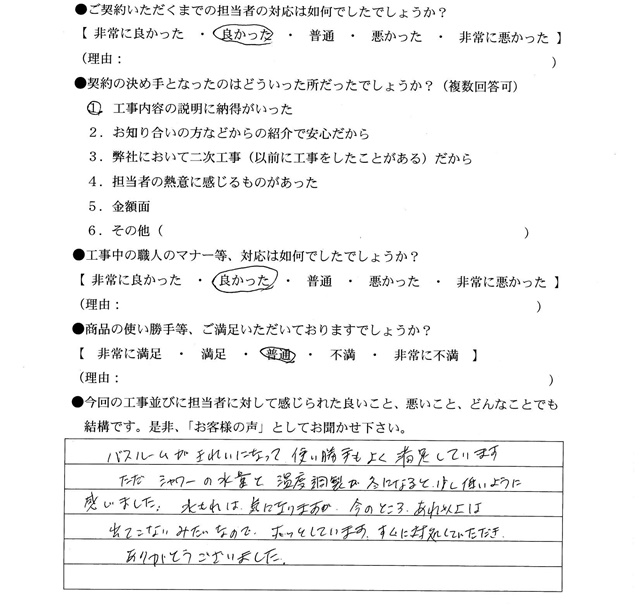 ●ご契約いただくまでの担当者の対応は如何でしたでしょうか？
【 非常に良かった ・ 良かった ・ 普通 ・ 悪かった ・ 非常に悪かった 】
（理由： ）
●契約の決め手となったのはどういった所だったでしょうか？（複数回答可）
１．工事内容の説明に納得がいった
２．お知り合いの方などからの紹介で安心だから
３．弊社において二次工事（以前に工事をしたことがある）だから
４．担当者の熱意に感じるものがあった
５．金額面
６．その他（ ）
●工事中の職人のマナー等、対応は如何でしたでしょうか？
【 非常に良かった ・ 良かった ・ 普通 ・ 悪かった ・ 非常に悪かった 】
（理由： ）
●商品の使い勝手等、ご満足いただいておりますでしょうか？
【 非常に満足 ・ 満足 ・ 普通 ・ 不満 ・ 非常に不満 】
（理由： ）
●今回の工事並びに担当者に対して感じられた良いこと、悪いこと、どんなことでも
結構です。是非、「お客様の声」としてお聞かせ下さい。
バスルームがきれいになって 使い勝手もよく 満足しています
ただ シャワーの水量と 温度調製が 冬になると、少し低いように
感じました。 水もれは、気になりますが、今のところ、あれ以上は
出てこないみたいなので、ホッとしています。すぐに対処していただき、
ありがとうございました。